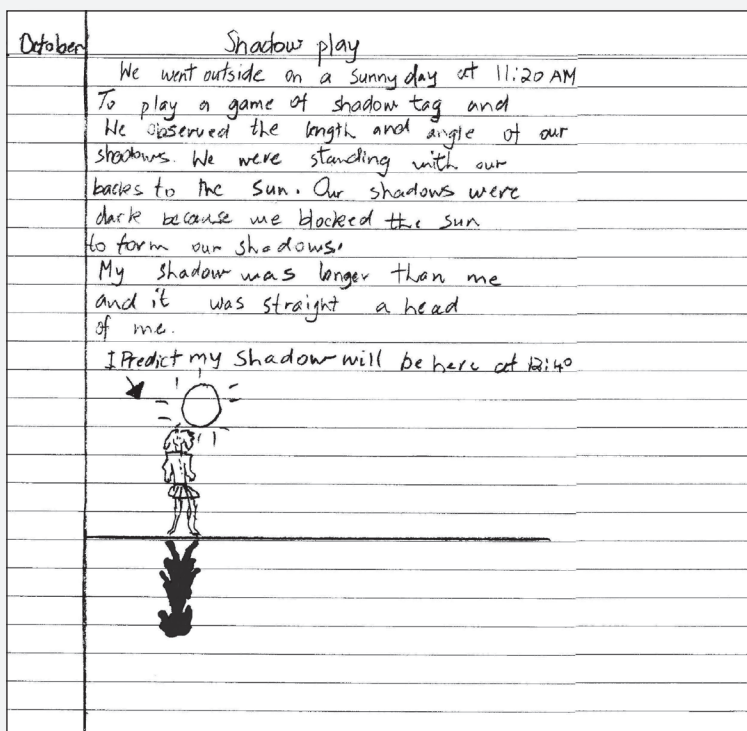 October
Shadow play
We went outside on a sunny day at 11:20 AM
To play a game of shadow tag and
We observed the length and angle of our
shadows. We were standing with our
backs to the sun. Our shadows were
dark because we blocked the sun
to form our shadows.
My shadow was longer than me
and it was straight a head
of me.
I Predict my shadow will be here at 12:40